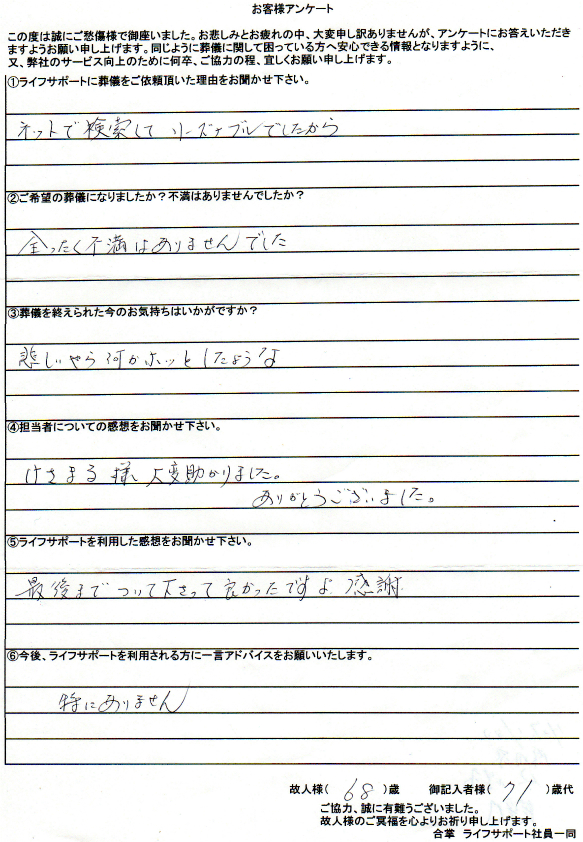 お客様アンケート
この度は誠にご愁傷様で御座いました。お悲しみとお疲れの中、大変申し訳ありませんが、アンケートにお答えいただき
ますようお願い申し上げます。同じように葬儀に関して困っている方へ安心できる情報となりますように、
又、弊社のサービス向上のために何卒、ご協力の程、宜しくお願い申し上げます。
①ライフサポートに葬儀をご依頼頂いた理由をお聞かせ下さい。
ネットで検索して リーズナブルでしたから
②ご希望の葬儀になりましたか？不満はありませんでしたか？
全ったく不満はありませんでした
③葬儀を終えられた今のお気持ちはいかがですか？
悲しいやら何かホッとしたような
④担当者についての感想をお聞かせ下さい。
けさまる様 大変助かりました。
ありがとうございました。
⑤ライフサポートを利用した感想をお聞かせ下さい。
最後まで ついて下さって 良かったですよ 感謝
⑥今後、ライフサポートを利用される方に一言アドバイスをお願いいたします。
特にありません
故人様( 68 )歳 御記入者様( 71 )歳代
ご協力、誠に有難うございました。
故人様のご冥福を心よりお祈り申し上げます。
合掌 ライフサポート社員一同